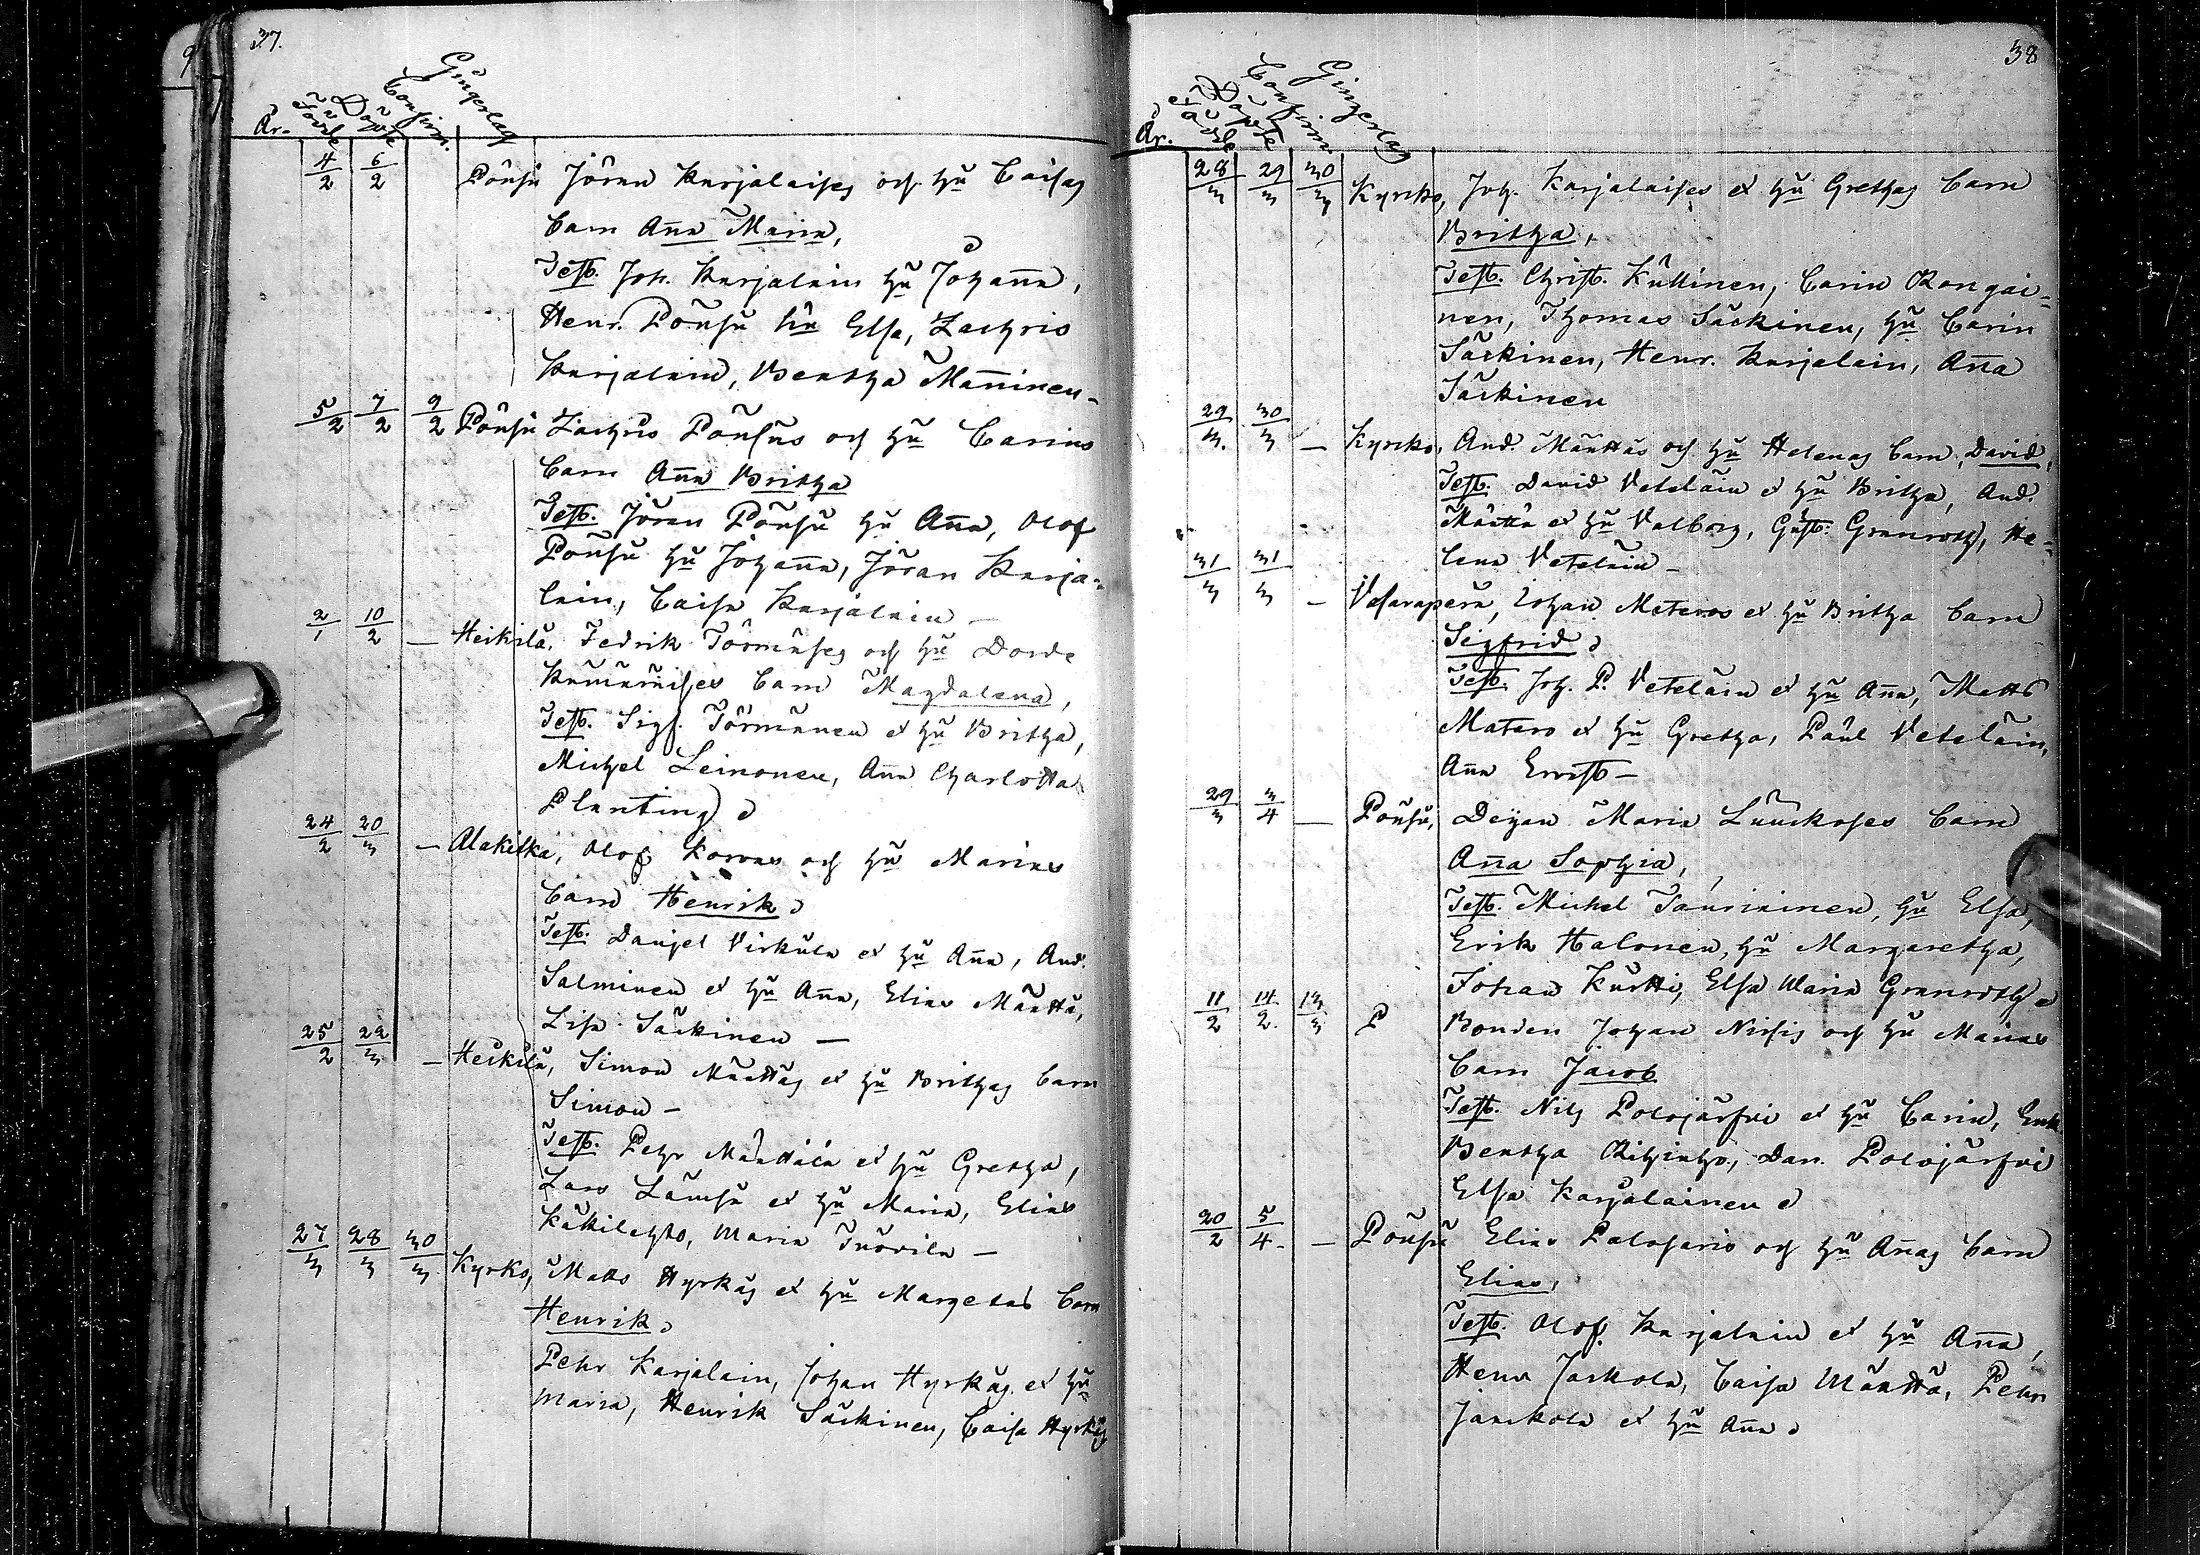 37.
År. Födde Döpte Confirm. Gingerlag
4/2 6/2 Pousu Jöran Karjalaises och hu Caisas
barn Anna Maria,
Test. Joh. Karjalain hu Johanna,
Henr. Pousu hu Elsa, Zachris
Karjalain, Beatha Manninen -
5/2 7/2 9/2 Pousu Zachris Pousus och hu Carins
barn Anna Britha
Test. Jöran Pousu hu Anna, Olof
Pousu hu Johanna, Jöran Karja=
lain, Caisa Karjalain -
2/1 10/2 - Heikilä, Fedrik Törmäses och hu Dorde
barn Magdalena,
Test. Sigf. Törmänen et hu Britha,
Michel Leinonen, Anna Charlotta
Planting
24/2 20/3 - Alakitka, Olof Korvas och hu Marias
barn Henrik
Test. Danjel Virkula et hu Anna, And.
Salminen et hu Anna, Elias Määttä,
Lisa Säckinen -
25/2 22/3 - Heikilä, Simon Määttäs et hu Brithas barn
Simon -
Test. Pehr Määttälä et hu Gretha,
Lars Lämsä et hu Maria, Elias
Käkilehto, Maria Tuovila -
27/3 28/3 30/3 Kyrko, Matts Hyrkäs et hu Margetas barn
Henrik
Pehr Karjalain, Johan Hyrkäs et hu
Maria, Henrik Säckinen, Caisa Hyrkäs
38
År. Födde Döpte Confirm. Gingerlag
28/3 29/3 30/3 Kyrcko, Joh. Karjalaises et hu Grethas barn
Britha,
Test. Christ. Kullinen, Carin Rongai=
nen, Thomas Säckinen, hu Carin
Säckinen, Henr. Karjalain, Anna
Säckinen
29/3 30/3 - Kyrcko, And. Määttäs och hu Helenas barn, David,
Test. David Vetelain et hu Britha, And.
Määttä et hu Valborg, Gust. Granroth, He=
lena Vetelain -
31/3 31/3 - Vasarapera, Johan Materos et hu Britha barn
Sigfrid
Test. Joh. P. Vetelain et hu Anna, Matts
Matero et hu Gretha, Paul Vetelain,
Anna Ervast -
29/3 3/4 - Pousu, Deijan Maria Luuckoses barn
Anna Sophia,
Test. Michel Tauriainen, hu Elsa,
Erik Halonen, hu Margaretha,
Johan Kurtti, Elsa Maria Granroth
11/2 14/2. 13/3 P Bonden Johan Nissis och hu Marias
barn Jacob
Test. Nils Polojärfvi et hu Carin, Enk
Beatha Dan. Polojärfvi
Elsa Karjalainen
20/2 5/4. - Pousu Elias Palosaris och hu Annas barn
Elias,
Test. Olof Karjalain et hu Anna,
Henr Jaskola, Caisa Määttä, Pehr
Janckola et hu Anna